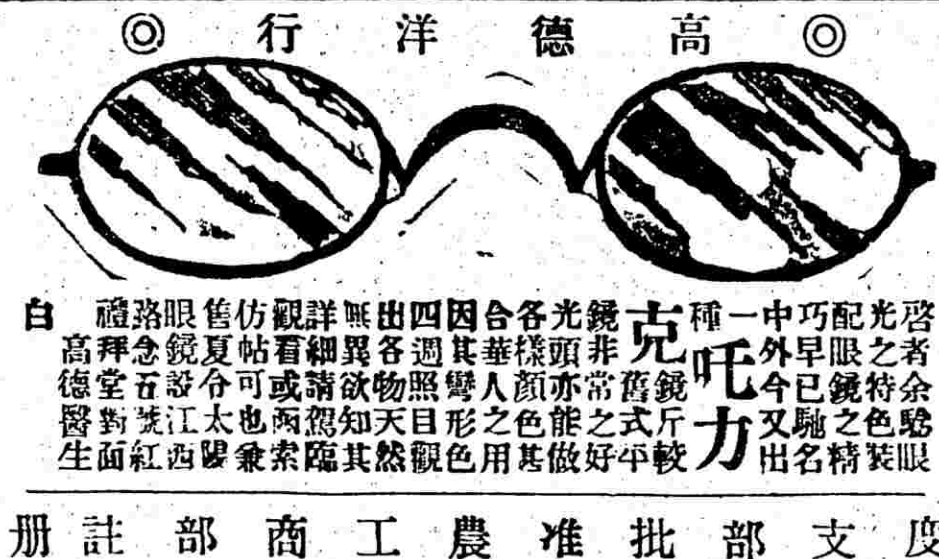 ◎高德洋行◎
啓者余騐眼
光之特色装
配眼鏡之精
巧早已馳名
中外今又出
一種
吒力
克
鏡斤較
舊式平
鏡非常之好
光頭亦能做
各樣顏色甚
合華人之用
因其彎形色
四週照目觀
出各物天然
無異欲知其
詳細請駕臨
觀看或函索
仿帖可也兼
售夏令太陽
眼鏡設江西
路念五號紅
禮拜堂對面
高德醫生
白
度支部批准農工商部註册